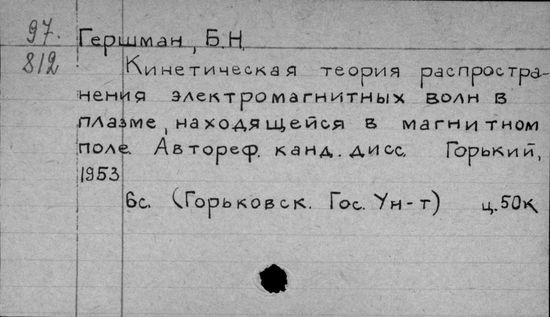 97. Гершман, Б.Н.
812 Кинетическая теория распростра-
нения электромагнитных волн в
плазме, находящейся в магнитном
поле. Автореф. канд. дисс. Горький,
1953
6с. (Горьковск. Гос. Ун-т) ц. 50к